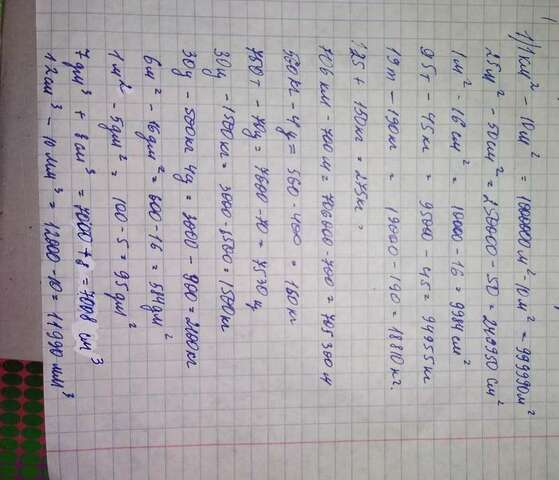 1) 1 км² - 10 м² = 1000000 м² - 10 м² = 999990 м²
25 м² - 50 см² = 250000 - 50 = 249950 см²
1 м² - 16 см² = 10000 - 16 = 9984 см²
95 т - 45 кг = 95000 - 45 = 94955 кг
19 т - 190 кг = 19000 - 190 = 18810 кг.
125 + 150 кг = 275 кг =
706 км - 700 м = 706000 - 700 = 705300 м
560 кг - 4 ц = 560 - 400 = 160 кг
760 т - 70 ц = 7600 - 70 = 7530 ц
30 ц - 1500 кг = 3000 - 1500 = 1500 кг
30 ц - 500 кг 4 ц = 3000 - 900 = 2100 кг
6 м² - 16 дм² = 600 - 16 = 584 дм²
1 м² - 5 дм² = 100 - 5 = 95 дм²
7 дм³ + 8 см³ = 7000 + 8 = 7008 см³
12 см³ - 10 мм³ = 12000 - 10 = 11990 мм³